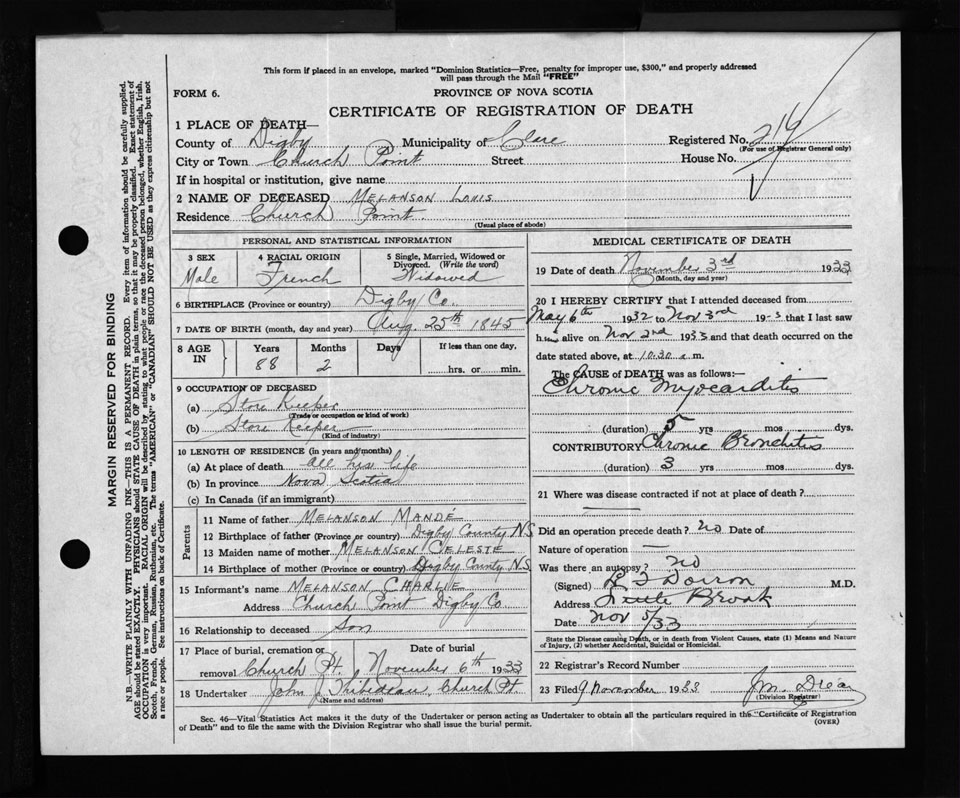 This form if placed in an envelope, marked "Dominion Statistics—Free, penalty for improper use, $300," and properly addressed
will pass through the Mail "FREE"
FORM 6.
PROVINCE OF NOVA SCOTIA
CERTIFICATE OF REGISTRATION OF DEATH
1 PLACE OF DEATH—
County of Digby Municipality of Clare Registered No. 214
(For use of Registrar General only)
City or Town Church Point Street House No.
If in hospital or institution, give name
2 NAME OF DECEASED MELANSON LOUIS
Residence Church Point
(Usual place of abode)
PERSONAL AND STATISTICAL INFORMATION
3 SEX 4 RACIAL ORIGIN 5 Single, Married, Widowed or
Divorced. (Write the word)
Male French Widowed
6 BIRTHPLACE (Province or country) Digby Co.
7 DATE OF BIRTH (month, day and year) Aug 25th 1845
8 AGE IN Years Months Days If less than one day,
88 2 hrs. or min.
9 OCCUPATION OF DECEASED
(a) Store Keeper
(Trade or occupation or kind of work)
(b) Store Keeper
(Kind of industry)
10 LENGTH OF RESIDENCE (in years and months)
(a) At place of death all his life
(b) In province Nova Scotia
(c) In Canada (if an immigrant)
Parents
11 Name of father MELANSON MANDE
12 Birthplace of father (Province or country) Digby County N.S.
13 Maiden name of mother MELANSON CELESTE
14 Birthplace of mother (Province or country) Digby County N.S.
15 Informant's name MELANSON CHARLIE
Address Church Point Digby Co
16 Relationship to deceased Son
17 Place of burial, cremation or Date of burial
removal Church Pt. November 6th 1933
18 Undertaker John J Thibideau, Church Pt
(Name and address)
MEDICAL CERTIFICATE OF DEATH
19 Date of death November 3rd 1933
(Month, day and year)
20 I HEREBY CERTIFY that I attended deceased from
May 6th 1932 to Nov 3rd 19-3 that I last saw
him alive on Nov 2nd 1933 and that death occurred on the
date stated above, at 10.30 a m.
The CAUSE OF DEATH was as follows:
Chronic Myocarditis
(duration) 5 yrs mos dys.
CONTRIBUTORY Chronic Bronchitis
(duration) 3 yrs mos dys.
21 Where was disease contracted if not at place of death?
Did an operation precede death? No Date of
Nature of operation
Was there an autopsy? No
(Signed) M.D.
Address Little Brook
Date Nov 5/33
State the Disease causing Death, or in death from Violent Causes, state (1) Means and Nature
of Injury, (2) whether Accidental, Suicidal or Homicidal.
22 Registrar's Record Number
23 Filed 9 November 1933 J.M.
(Division Registrar)
Sec. 46—Vital Statistics Act makes it the duty of the Undertaker or person acting as Undertaker to obtain all the particulars required in the "Certificate of Registration
of Death" and to file the same with the Division Registrar who shall issue the burial permit.
(OVER)
MARGIN RESERVED FOR BINDING
N.B.—WRITE PLAINLY WITH UNFADING INK—THIS IS A PERMANENT RECORD. Every item of information should be carefully supplied.
AGE should be stated EXACTLY. PHYSICIANS should STATE CAUSE OF DEATH in plain terms, so that it may be properly classified. Exact statement of
OCCUPATION is very important. RACIAL ORIGIN will be described by stating to what people or race the deceased person belonged, whether English, Irish,
Scotch, French, German, Russian, Ruthenian, etc. The terms "AMERICAN" or "CANADIAN" SHOULD NOT BE USED as they express citizenship but not
a race or people. See instructions on back of Certificate.